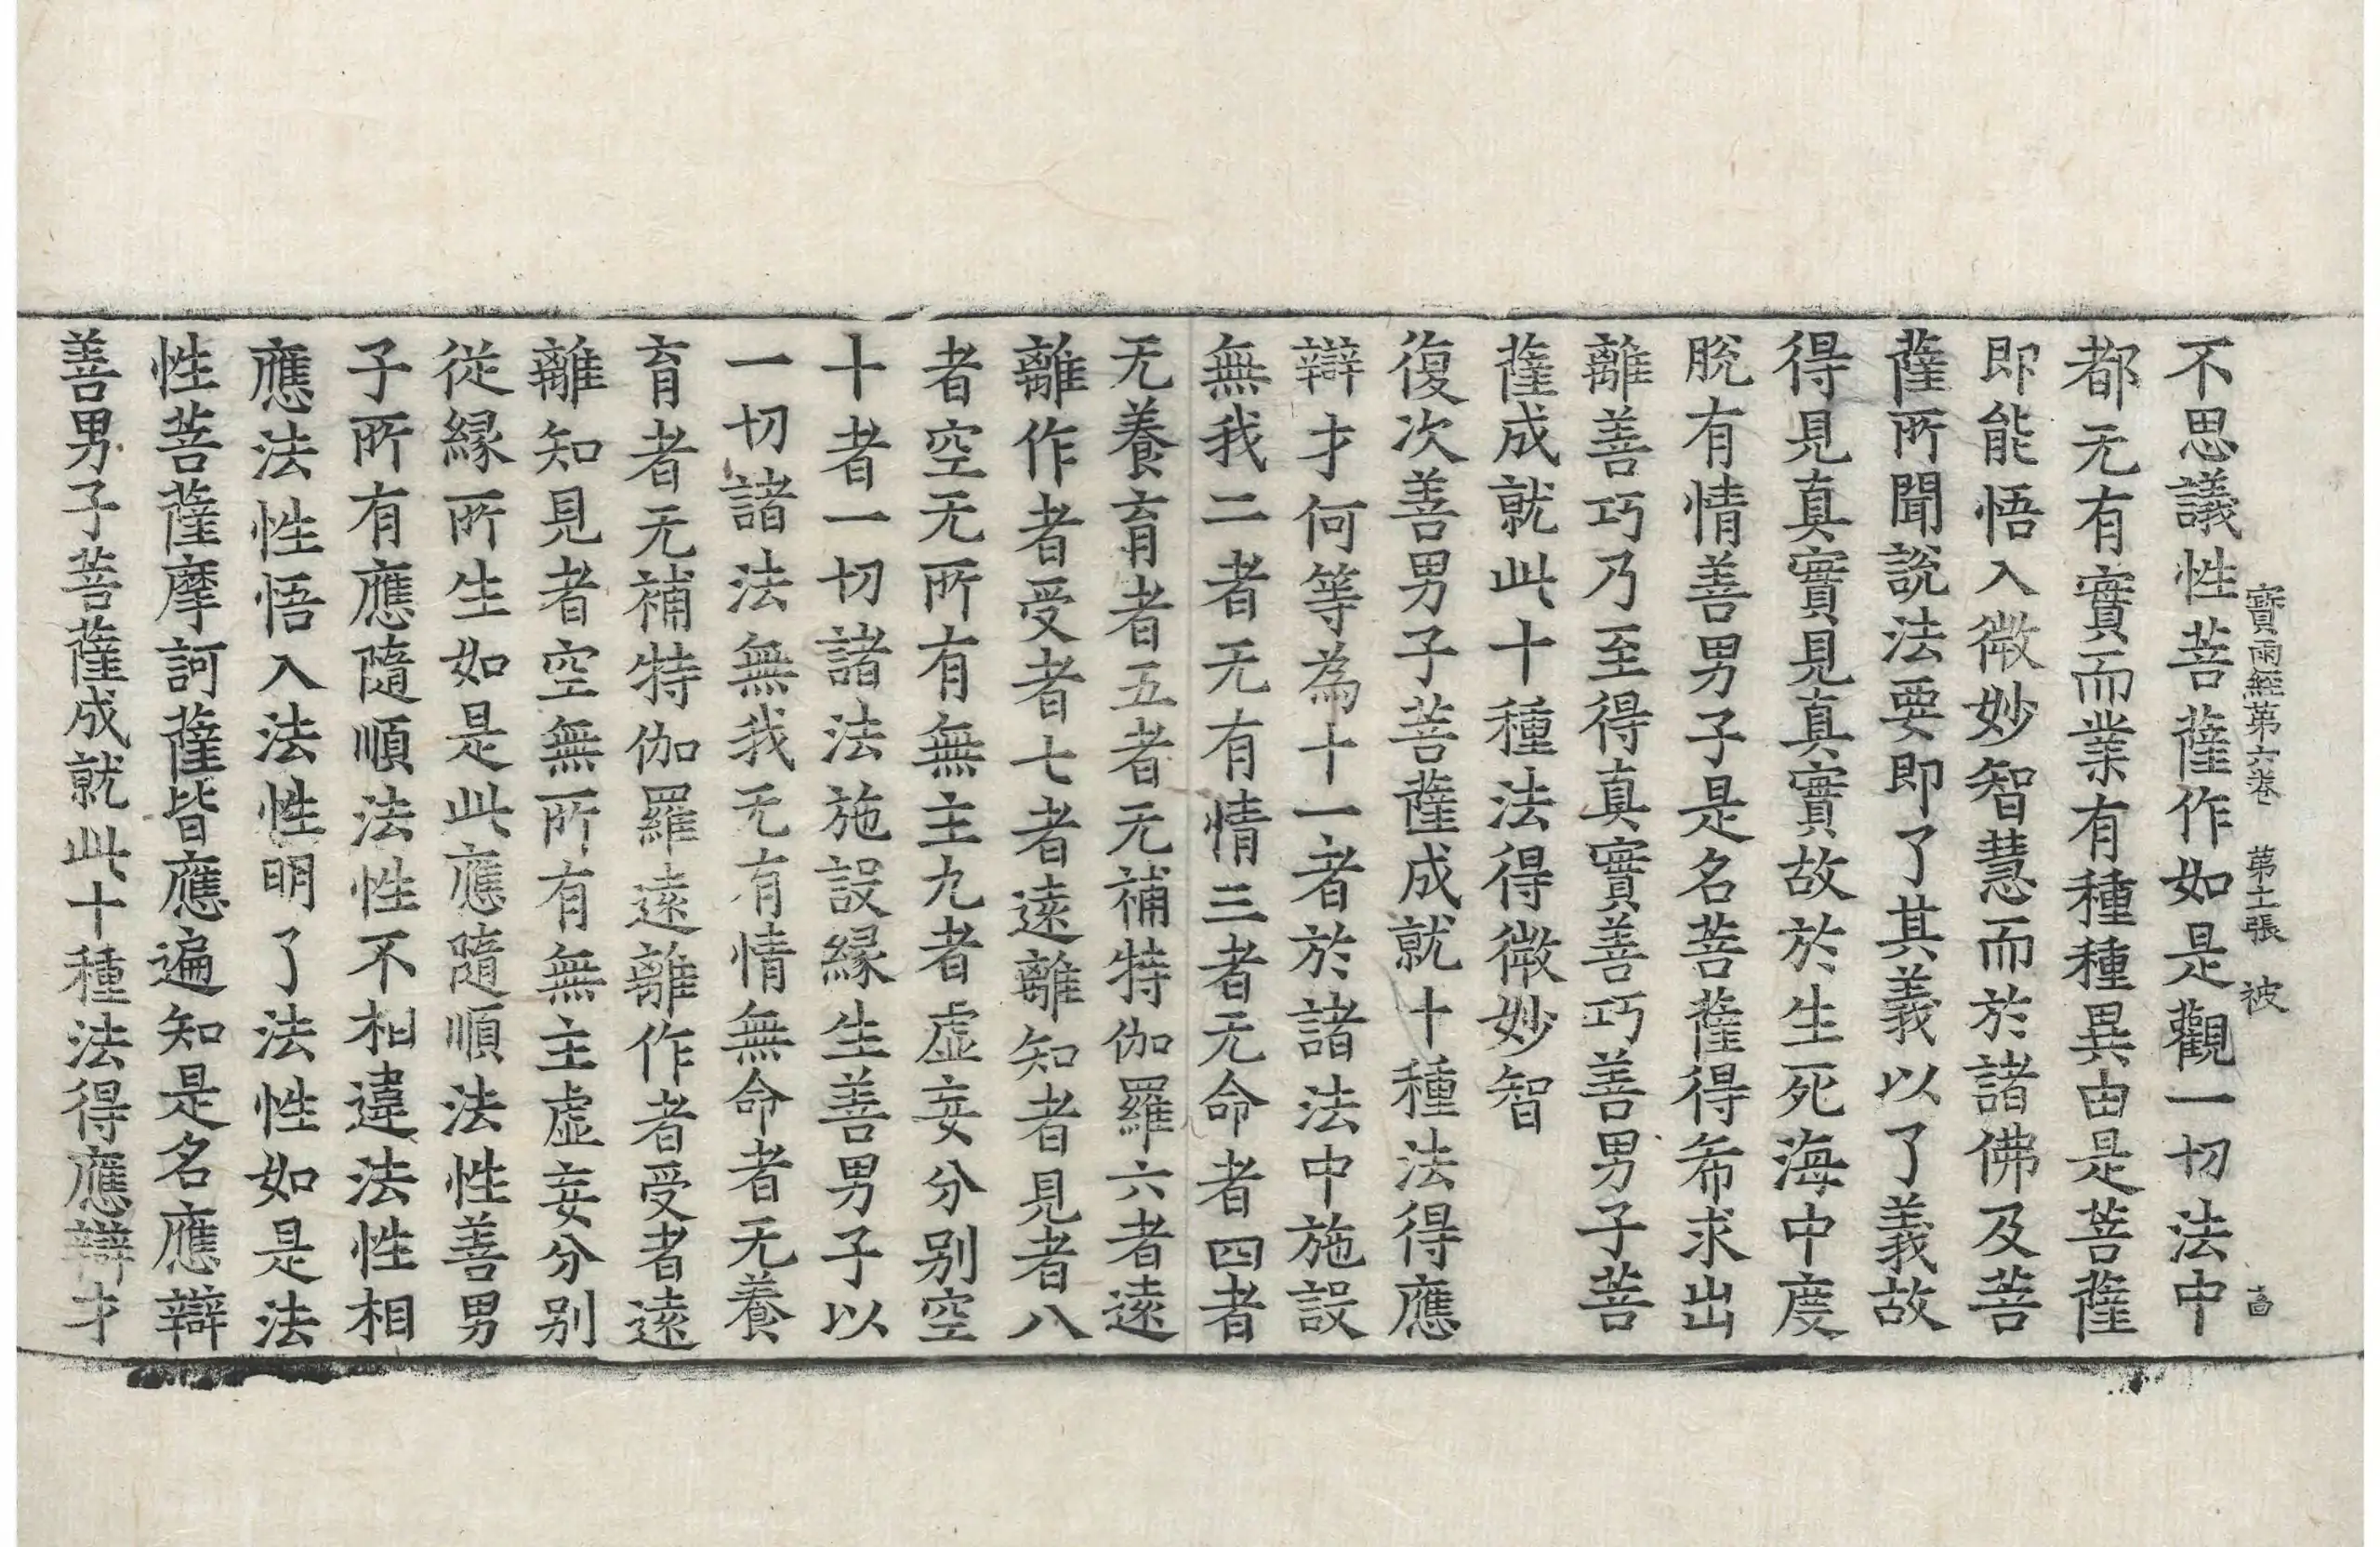 寶雨經第六卷 第十二張 被
不思議性菩薩作如是觀一切法中
都无有實而業有種種異由是菩薩
即能悟入微妙智慧而於諸佛及菩
薩所聞說法要即了其義以了義故
得見真實見真實故於生死海中度
脫有情善男子是名菩薩得希求出
離善巧乃至得真實善巧善男子菩
薩成就此十種法得微妙智
復次善男子菩薩成就十種法得應
辯才何等為十一者於諸法中施設
無我二者无有情三者无命者四者
无養育者五者无補特伽羅六者遠
離作者受者七者遠離知者見者八
者空无所有無主九者虛妄分别空
十者一切諸法施設緣生善男子以
一切諸法無我无有情無命者无養
育者无補特伽羅遠離作者受者遠
離知見者空無所有無主虛妄分别
從緣所生如是此應隨順法性善男
子所有應隨順法性不相違法性相
應法性悟入法性明了法性如是法
性菩薩摩訶薩皆應遍知是名應辯
善男子菩薩成就此十種法得應辯才